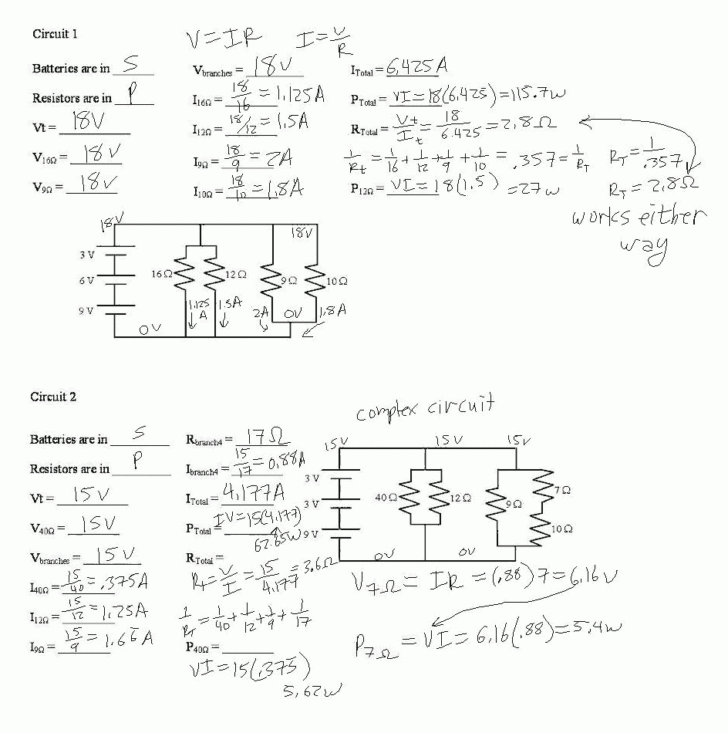 Circuit 1
V=IR I=V/R
Batteries are in S
Resistors are in P
Vt = 18V
V16Ω = 18V
V9Ω = 18V
Vbranches = 18V
I16Ω = 18/16 = 1.125A
I12Ω = 18/12 = 1.5A
I9Ω = 18/9 = 2A
I10Ω = 18/10 = 1.8A
ITotal = 6.425A
PTotal = VI = 18(6.425) = 115.7w
RTotal = Vt/It = 18/6.425 = 2.8Ω
1/Rt = 1/16 + 1/12 + 1/9 + 1/10 = .357 = 1/RT RT = 1/.357
P12Ω = VI = 18(1.5) = 27w
RT = 2.8Ω
works either
way
18V 18V
3 V
6 V
9 V
16Ω 12Ω 9Ω 10Ω
1.125A 1.5A 2A 0V 1.8A
0V
Circuit 2
complex circuit
Batteries are in S
Resistors are in P
Vt = 15V
V40Ω = 15V
Vbranches = 15V
I40Ω = 15/40 = .375A
I12Ω = 15/12 = 1.25A
I9Ω = 15/9 = 1.66A
Rbranch4 = 17Ω
Ibranch4 = 15/17 = 0.88A
ITotal = 4.177A
PTotal = IV = 15(4.177)
62.65W
RTotal =
RT = V/I = 15/4.177 = 3.6Ω
1/RT = 1/40 + 1/12 + 1/9 + 1/17
P40Ω =
VI = 15(.375)
5.62w
15V 15V 15V
3 V
3 V
9 V
40Ω 12Ω 9Ω 7Ω
10Ω
0V 0V
V7Ω = IR = (.88)7 = 6.16V
P7Ω = VI = 6.16(.88) = 5.4w